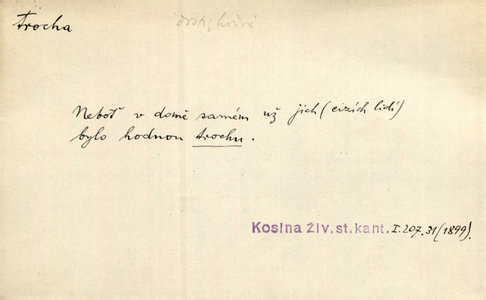 trocha
Neboť v domě samém už jich (cizích lidí)
bylo hodnou trochu.
Kosina Živ. st. kant. I. 207. 31 (1899).